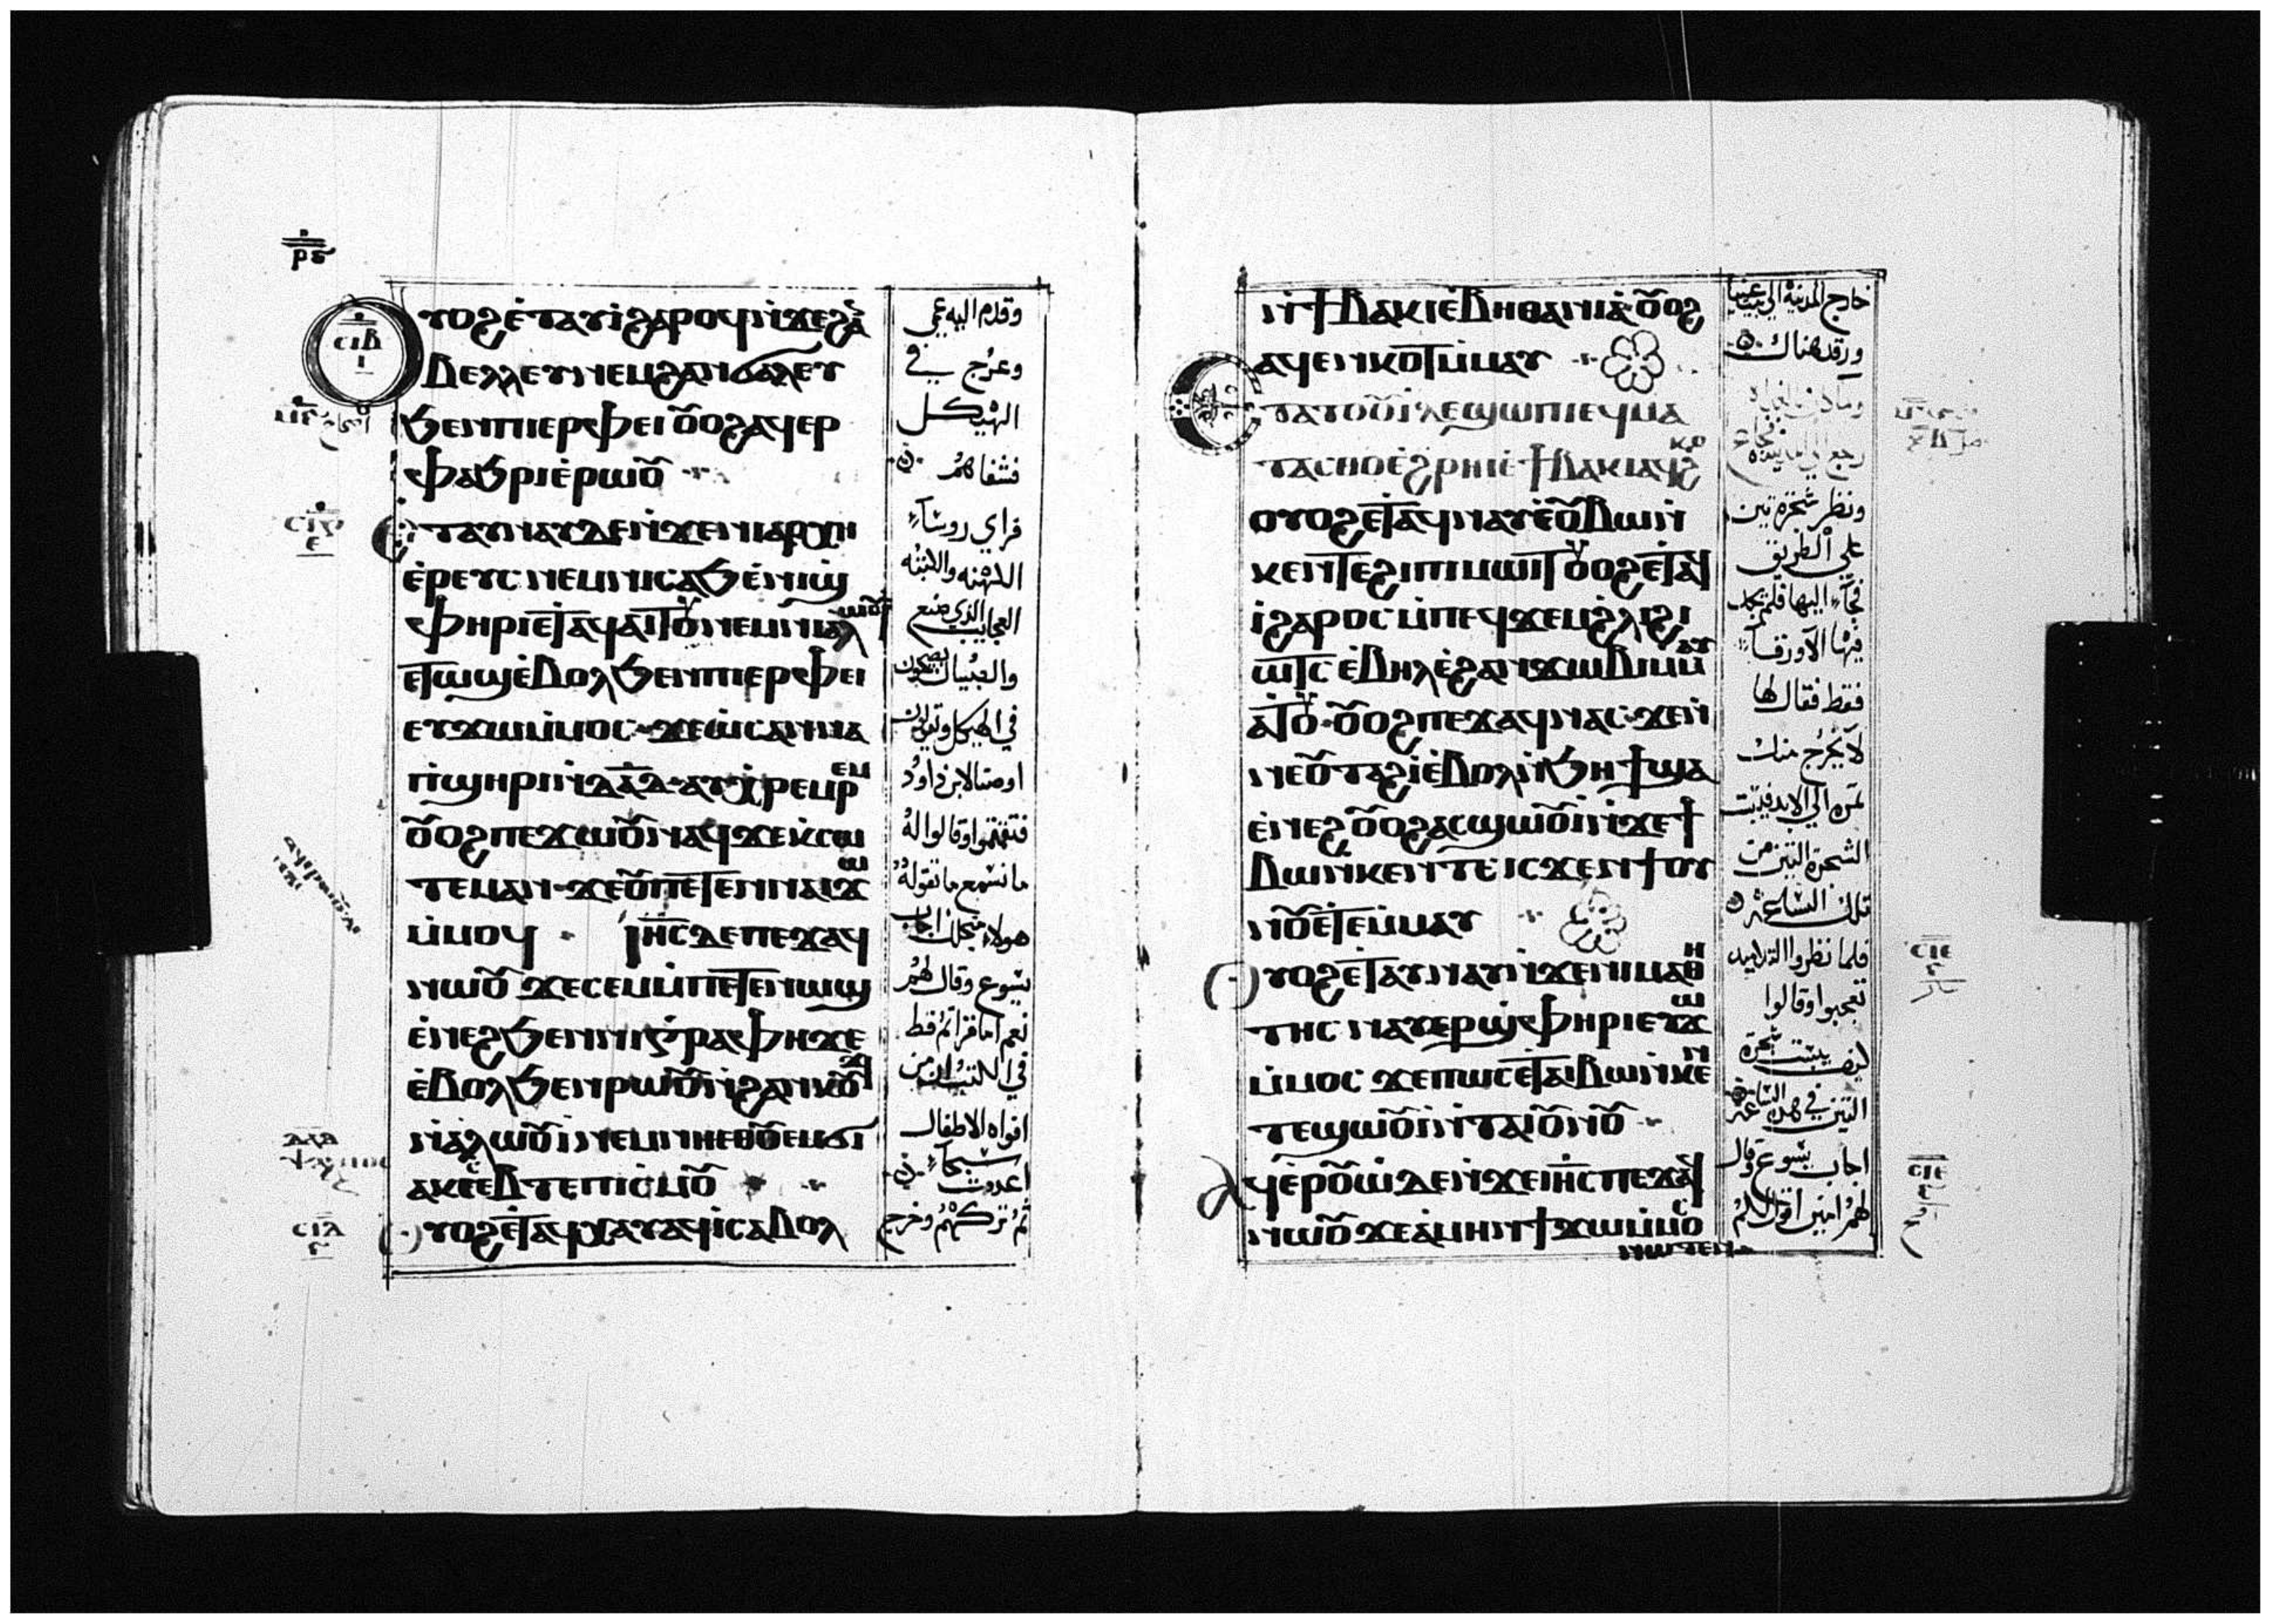 ⲣ̅ⲋ̅
ⲟⲩⲟϩ ⲉ̀ⲧⲁⲩⲓ̀ ϩⲁⲣⲟϥ ⲛ̀ϫⲉϩⲁⲛ
ⲃⲉⲗⲗⲉⲩ ⲛⲉⲙ ϩⲁⲛϭⲁⲗⲉⲩ
ϧⲉⲛ ⲡⲓⲉⲣⲫⲉⲓ ⲟⲩⲟϩ ⲁϥⲉⲣ
ⲫⲁϧⲣⲓ ⲉ̀ⲣⲱⲟⲩ
ⲉⲧⲁⲩⲛⲁⲩ ⲇⲉ ⲛ̀ϫⲉ ⲛⲓⲁⲣⲭⲏ
ⲉ̀ⲣⲉⲩⲥ ⲛⲉⲙ ⲛⲓⲥⲁϧ ⲉ̀ⲛⲓϣ
ⲫⲏⲣⲓ ⲉⲧⲁϥⲁⲓⲧⲟⲩ ⲛⲉⲙ ⲛⲓⲁⲗⲱⲟⲩⲓ
ⲉⲧⲱϣ ⲉ̀ⲃⲟⲗ ϧⲉⲛ ⲡⲓⲉⲣⲫⲉⲓ
ⲉⲩϫⲱ ⲙ̀ⲙⲟⲥ ϫⲉ ⲱⲥⲁⲛⲛⲁ
ⲡ̀ϣⲏⲣⲓ ⲛ̀ⲇⲁⲇ ⲁⲩⲭ̀ⲣⲉⲙⲣⲉⲙ
ⲟⲩⲟϩ ⲡⲉϫⲱⲟⲩ ⲛⲁϥ ϫⲉ ⲕ̀ⲥⲱ
ⲧⲉⲙ ⲁⲛ ϫⲉ ⲟⲩ ⲡⲉⲧⲉⲛⲁⲓ ϫⲱ
ⲙ̀ⲙⲟϥ ⲓⲏ̅ⲥ̅ ⲇⲉ ⲡⲉϫⲁϥ
ⲛⲱⲟⲩ ϫⲉ ⲥⲉ ⲙ̀ⲡⲉⲧⲉⲛⲱϣ
ⲉ̀ⲛⲉϩ ϧⲉⲛ ⲛⲓⲅⲣⲁⲫⲏ ϫⲉ
ⲉ̀ⲃⲟⲗ ϧⲉⲛ ⲣⲱⲟⲩ ⲛ̀ϩⲁⲛⲕⲟⲩϫⲓ
ⲛ̀ⲁⲗⲱⲟⲩⲓ ⲛⲉⲙ ⲛⲏⲉⲑⲟⲩⲉⲙϭⲓ
ⲁⲕⲥⲉⲃⲧⲉ ⲡⲓⲥⲙⲟⲩ
ⲟⲩⲟϩ ⲉⲧⲁϥⲭⲁⲩ ⲁϥⲓ̀ ⲥⲁⲃⲟⲗ
وقدم اليه عمي
وعرج في
الهيكل
فشفاهم
فراي روسآء
الكهنه والكتبه
العجايب الذي صنع
والصبيان يصيحون
في الهيكل وتقولون
اوصنا لابن داود
فتقمقموا وقالوا له
ما تسمع ما تقوله
هولاء اجاب
يسوع وقال لهم
نعم اما قراتم قط
في الكتب ان من
افواه الاطفال
اعددت سبحآ
ثم تركهم وخرج
ⲥⲓⲃ
ⲥⲓⲅ
ⲥⲓⲇ
ⲛ̀ϯⲃⲁⲕⲓ ⲉ̀ⲃⲏⲑⲁⲛⲓⲁ ⲟⲩⲟϩ
ⲁϥⲉⲛⲕⲟⲧ ⲙ̀ⲙⲁⲩ
ⲉⲧⲁⲧⲟⲟⲩⲓ ⲇⲉ ϣⲱⲡⲓ ⲉϥⲛⲁ
ⲧⲁⲥⲑⲟ ⲉ̀ϩⲣⲏⲓ ⲉ̀ϯⲃⲁⲕⲓ ⲁϥϩⲕⲟ
ⲟⲩⲟϩ ⲉⲧⲁϥⲛⲁⲩ ⲉ̀ⲟⲩⲃⲱ ⲛ̀
ⲕⲉⲛⲧⲉ ϩⲓ ⲡⲓⲙⲱⲓⲧ ⲟⲩⲟϩ ⲉⲧⲁϥ
ⲓ̀ ϩⲁⲣⲟⲥ ⲙ̀ⲡⲉϥϫⲉⲙ ϩ̀ⲗⲓ ϩⲓ
ⲱⲧⲥ ⲉ̀ⲃⲏⲗ ⲉ̀ϩⲁⲛϫⲱⲃⲓ ⲙ̀ⲙⲁⲩ
ⲁⲧⲟⲩ ⲟⲩⲟϩ ⲡⲉϫⲁϥ ⲛⲁⲥ ϫⲉ ⲛ̀
ⲛⲉⲟⲩⲧⲁϩ ⲓ̀ ⲉ̀ⲃⲟⲗ ⲛ̀ϧⲏϯ ϣⲁ
ⲉ̀ⲛⲉϩ ⲟⲩⲟϩ ⲁⲥϣⲱⲟⲩⲓ̀ ⲛ̀ϫⲉ ϯ
ⲃⲱ ⲛ̀ⲕⲉⲛⲧⲉ ⲓⲥϫⲉⲛ ϯⲟⲩ
ⲛⲟⲩ ⲉⲧⲉⲙ̀ⲙⲁⲩ
ⲟⲩⲟϩ ⲉⲧⲁⲩⲛⲁⲩ ⲛ̀ϫⲉ ⲛⲓⲙⲁⲑⲏ
ⲧⲏⲥ ⲛⲁⲩⲉⲣϣ̀ⲫⲏⲣⲓ ⲉⲩϫⲱ
ⲙ̀ⲙⲟⲥ ϫⲉ ⲡⲱⲥ ⲉⲧⲁ ⲃⲱ ⲛ̀ⲕⲉⲛ
ⲧⲉ ϣⲱⲟⲩⲓ̀ ⲛ̀ⲧⲁⲓⲟⲩⲛⲟⲩ
ⲁϥⲉ̀ⲣⲟⲩⲱ̀ ⲇⲉ ⲛ̀ϫⲉ ⲓⲏ̅ⲥ̅ ⲡⲉϫⲁϥ
ⲛⲱⲟⲩ ϫⲉ ⲁ̀ⲙⲏⲛ ϯϫⲱ ⲙ̀ⲙⲟⲥ
ⲛⲱⲧⲉⲛ
خارج المدينة الي بيت عنيا
ورقد هناك
رجع الي المدينة جاع
ونظر شجرة تين
علي الطريق
فجآء اليها فلم يجد
فيها الا ورقا
فقط فقال لها
لا يخرج منك
ثمرة الي الابد فيبست
الشجرة التين من
تلك الساعة
فلما نظروا التلاميد
تعجبوا وقالوا
كيف يبست شجرة
التين في هذه الساعة
اجاب يسوع وقال
لهم امين اقول لكم
ⲥⲓⲉ